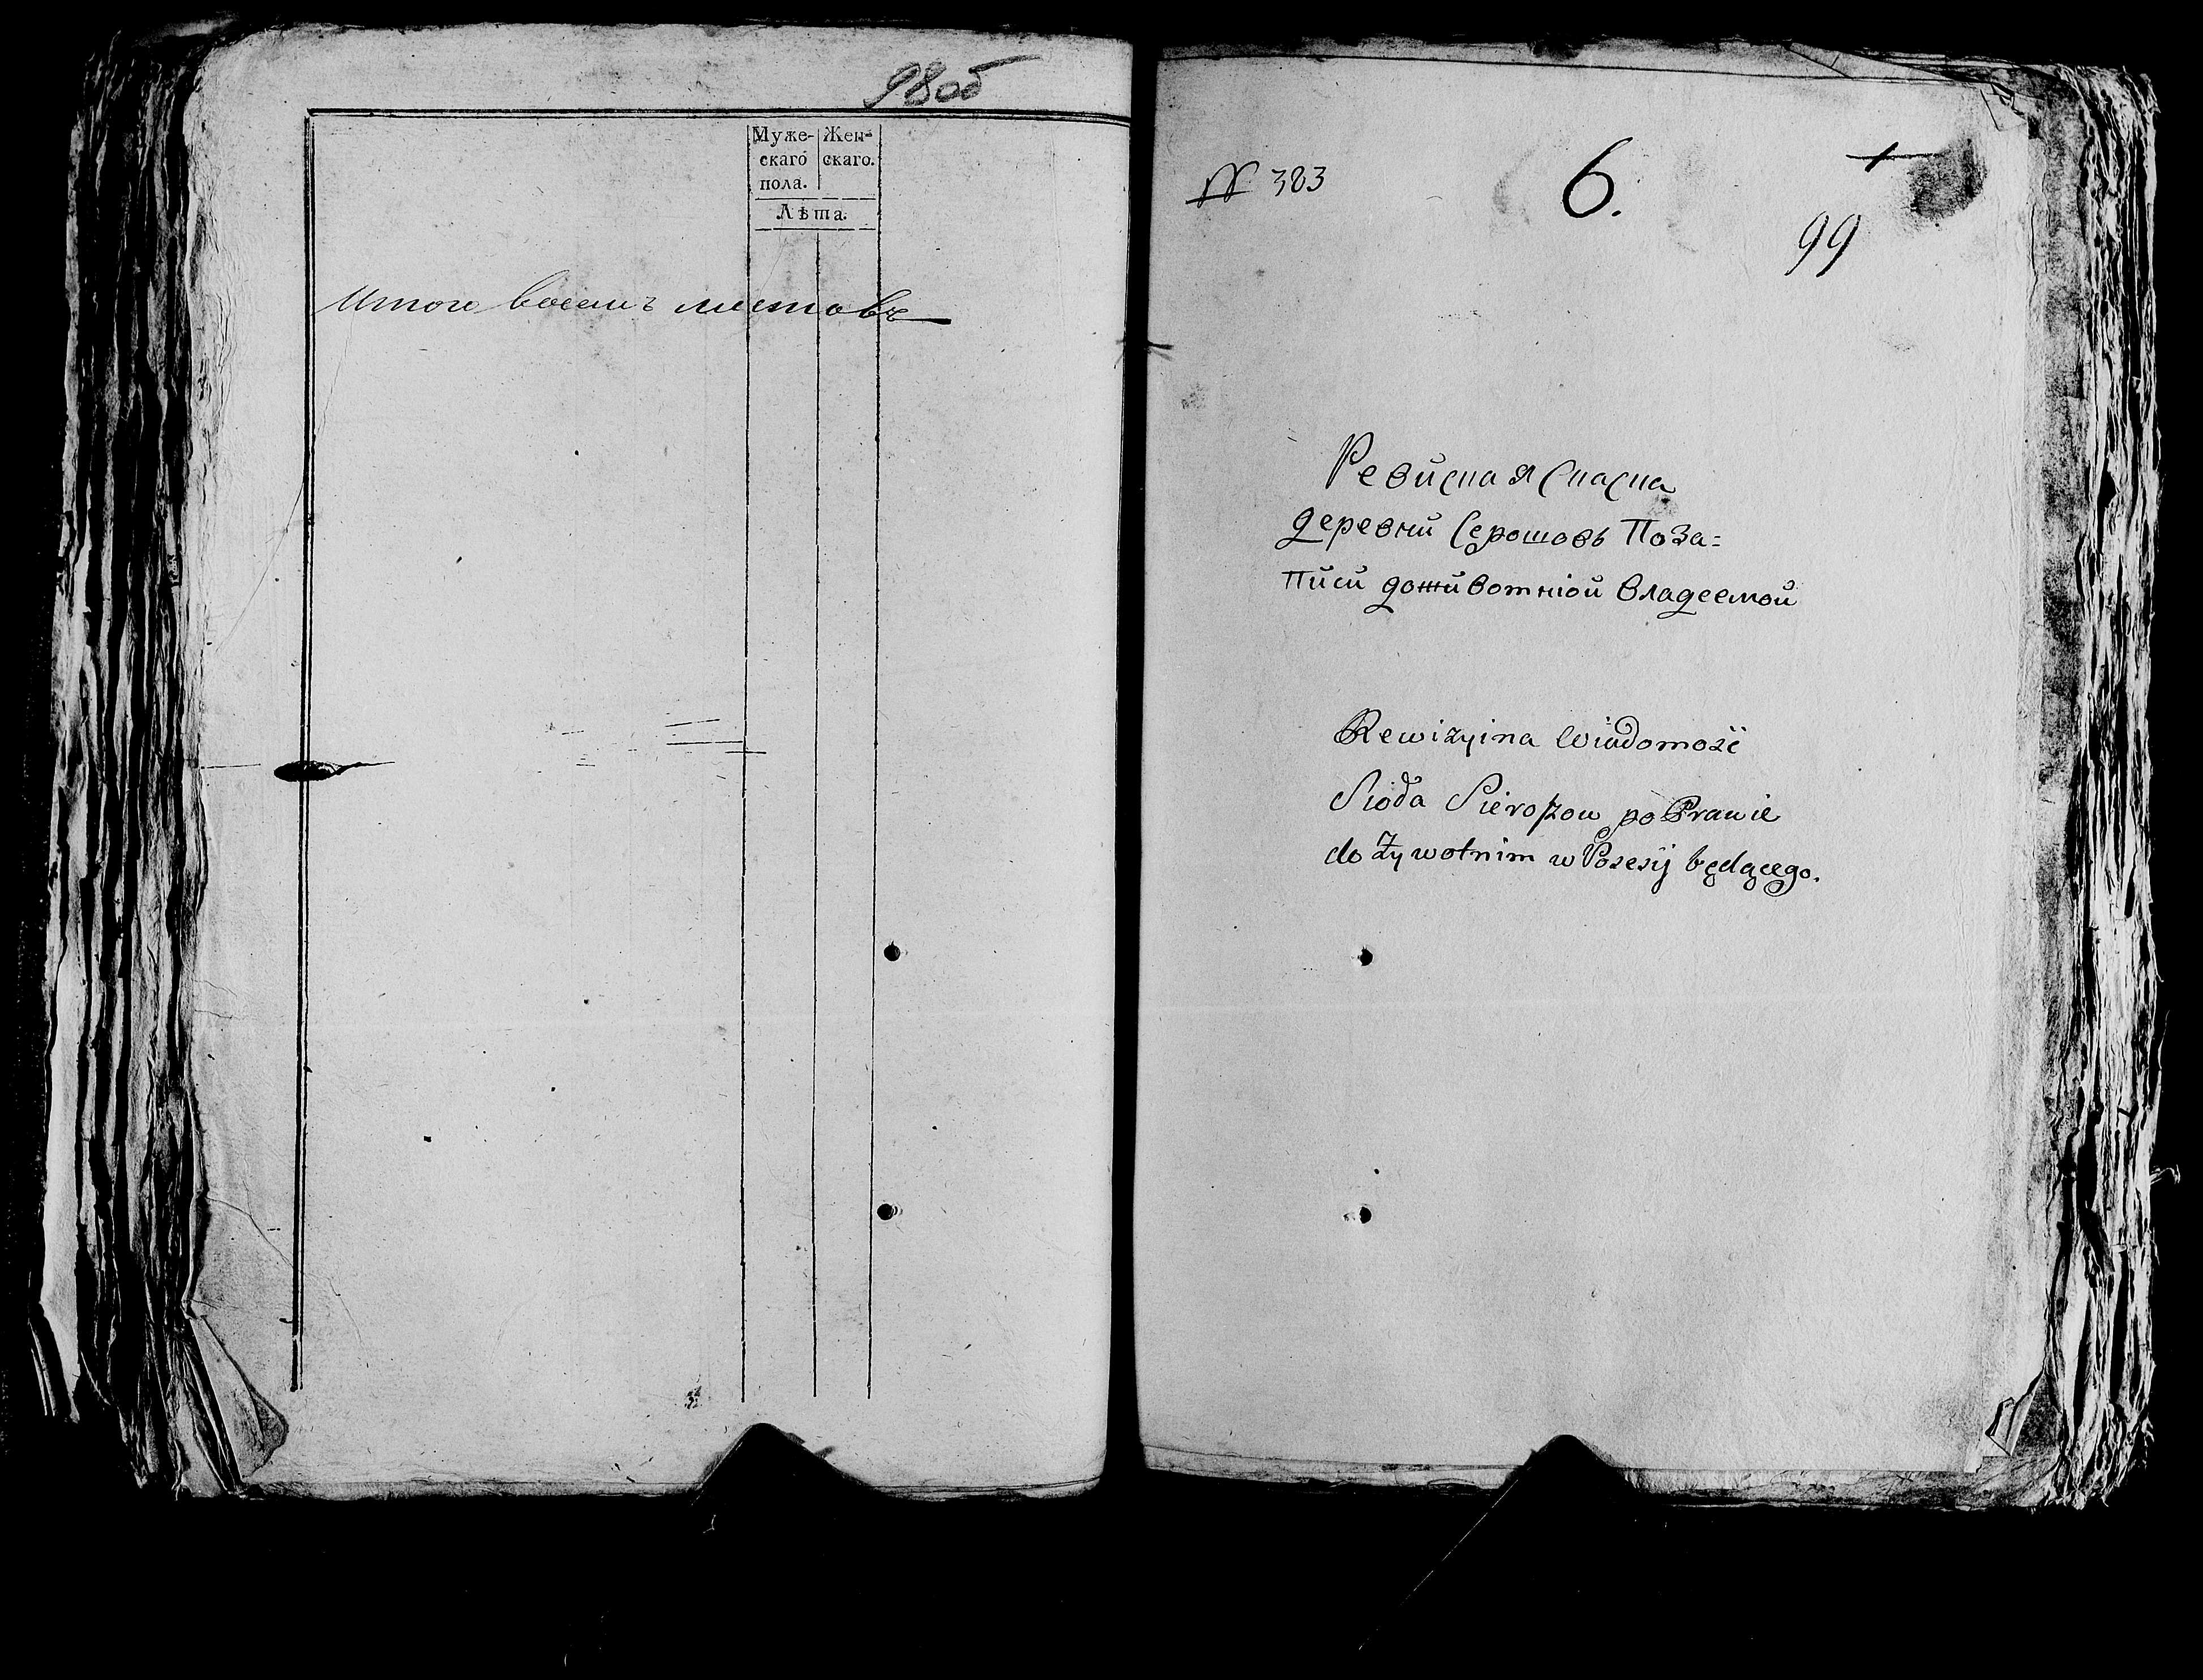 98об
Муже- Жен-
скаго скаго.
пола.
Лѣта.
Итого восемь листовъ
№ 383
6.
99
Ревиская Скаска
деревни Серошовъ Поза=
писи доживотніой владеемой
Rewizyina Wiadomość
Sioła Sieroszow po Prawie
do Żywotnim w Posesij będącego.